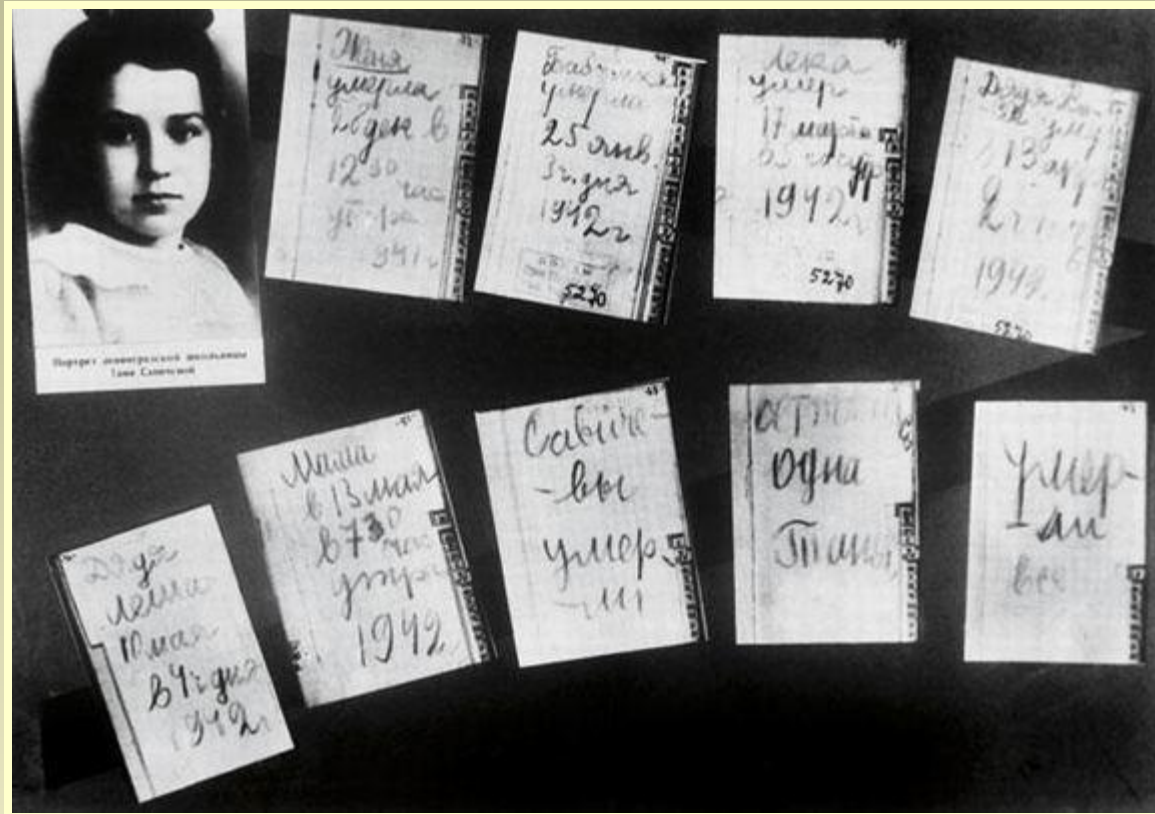 Портрет ленинградской школьницы
Тани Савичевой
Женя
умерла
28 дек в
12 30
час
утра
1941 г
Бабушка
умерла
25 янв.
3 ч. дня
1942 г
5270
Лека
умер
17 марта
в 5 час утр
1942 г
5270
Дядя Ва-
ся ум
13 апр
2 ч
1942
5270
Дядя
Леша
10 мая
в 4 ч дня
1942 г
Мама
в 13 мая
в 7 30
час
утра
1942
Савиче-
-вы
умер
-ли
одна
Таня
умер-
-ли
все